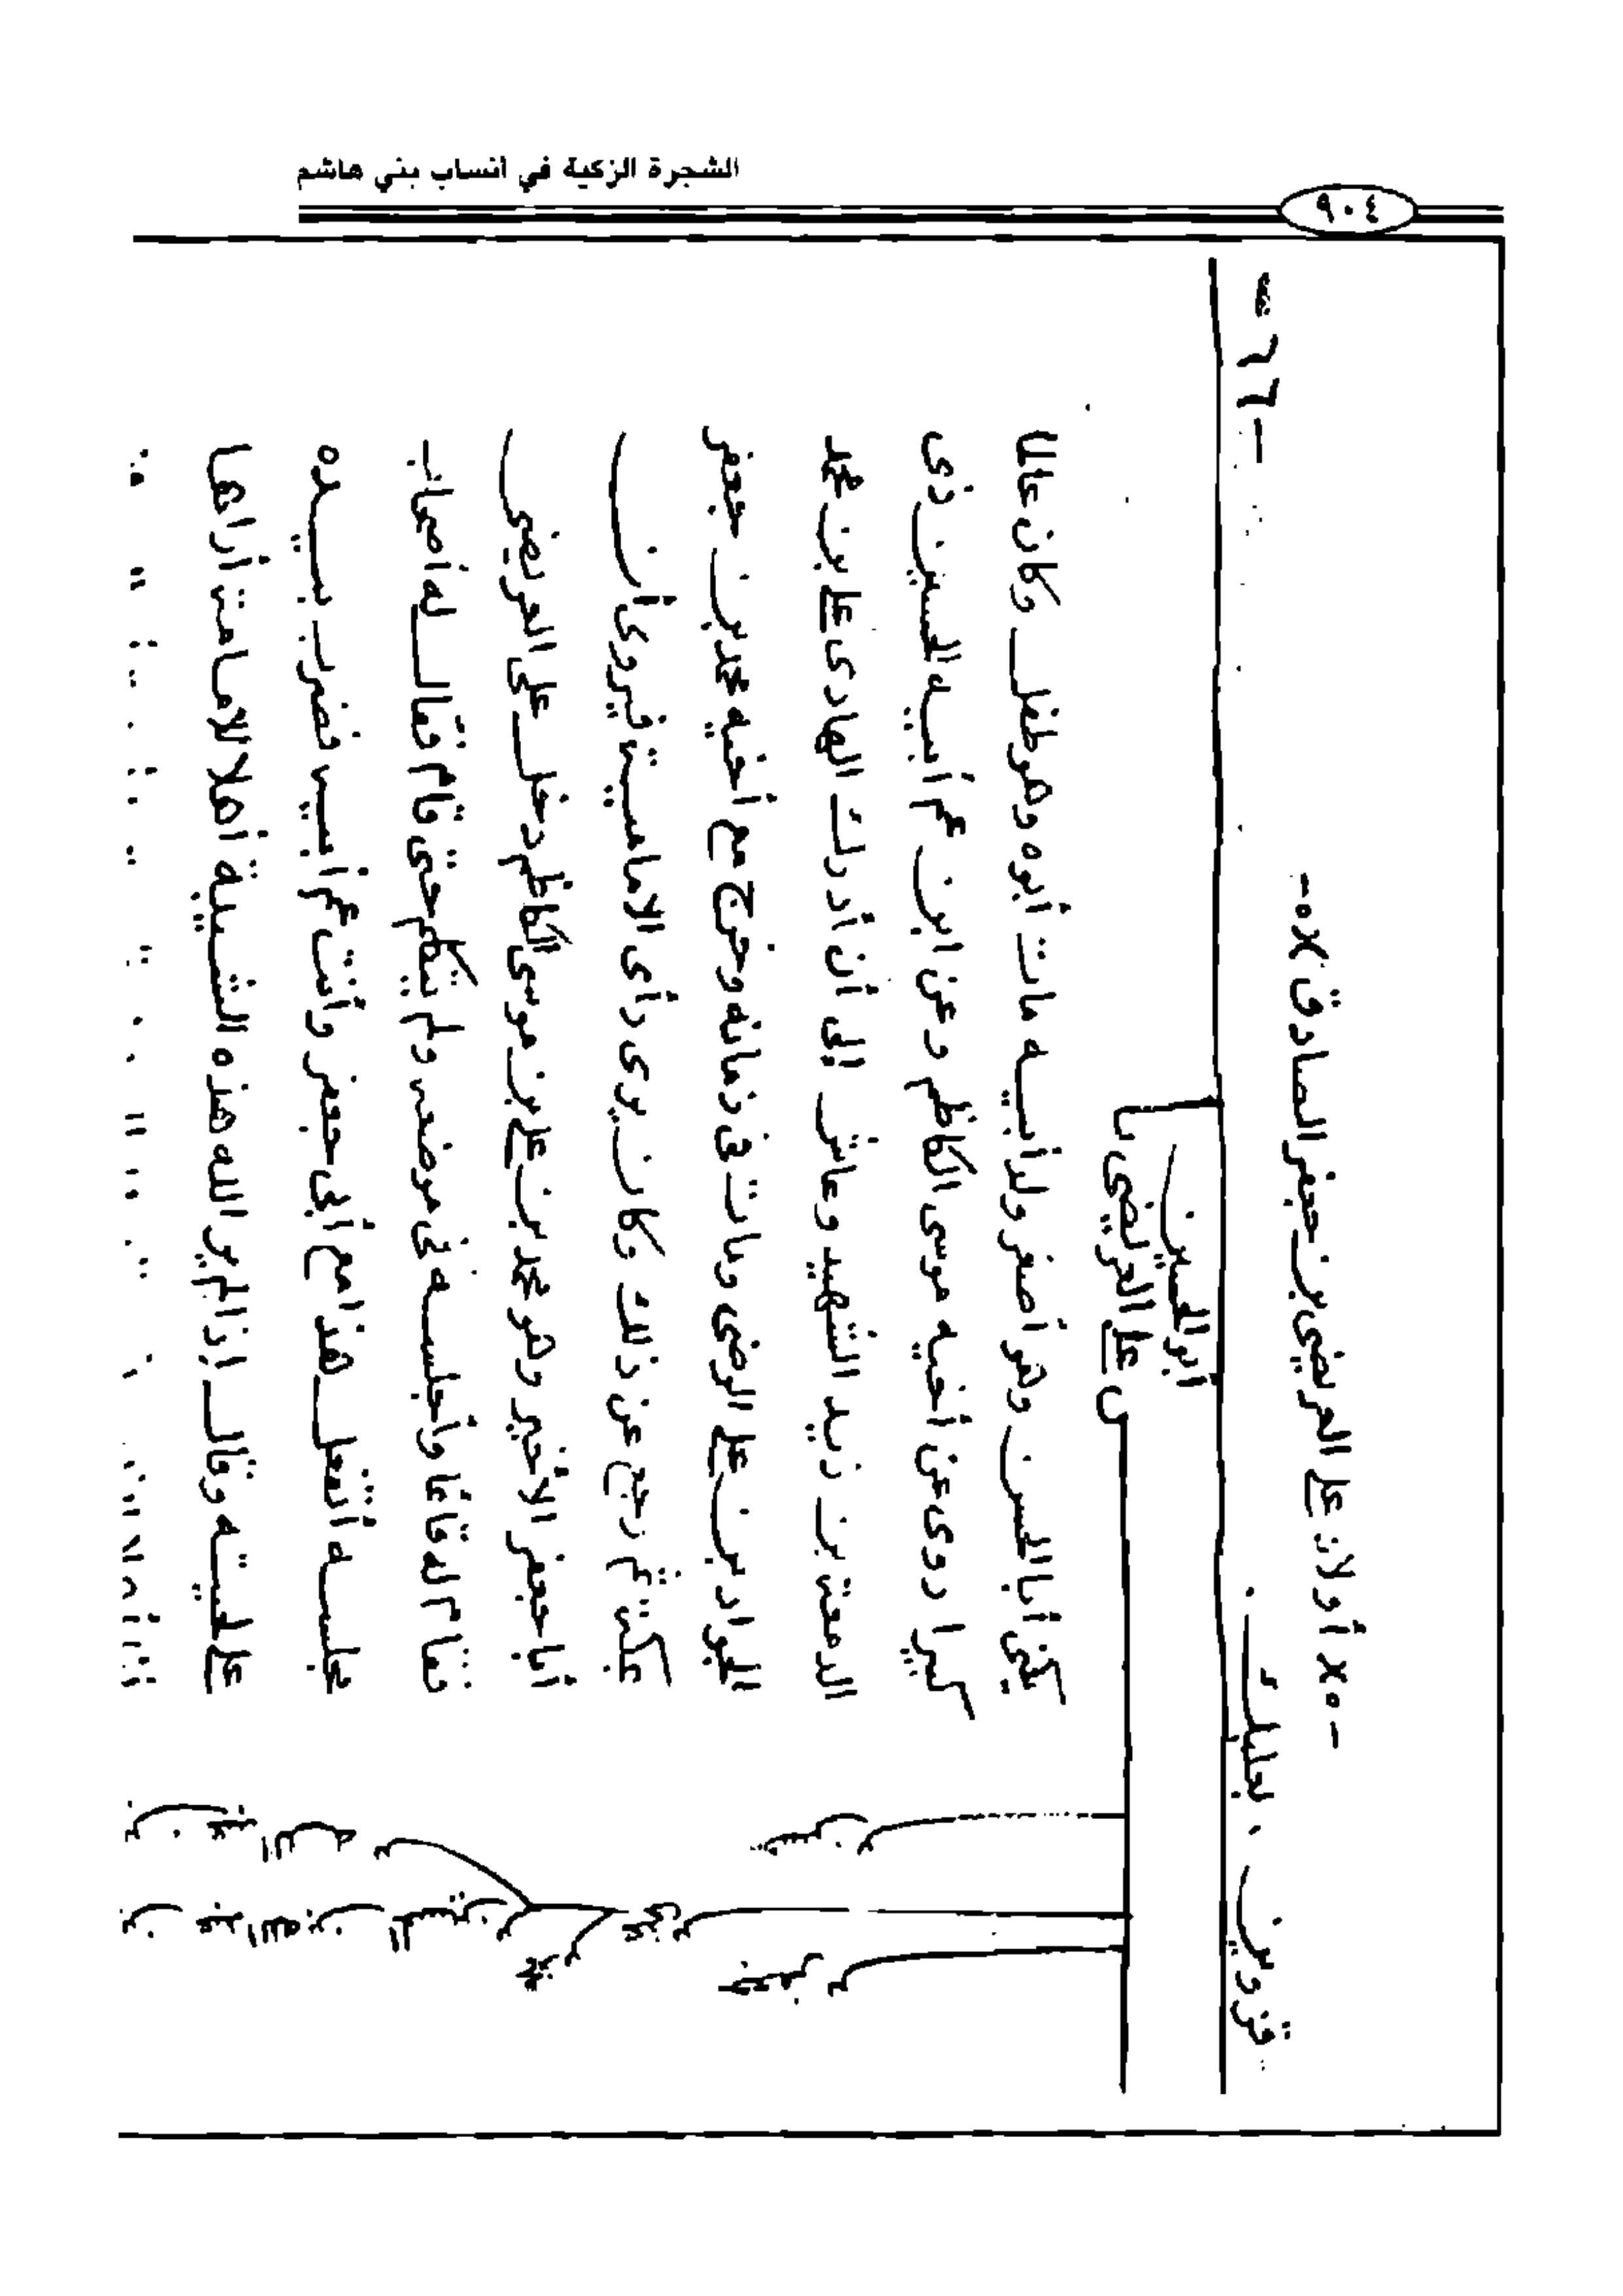 الشجرة الزكية في أنساب بني هاشم
٩٠٤
- ٦٦ -
-٥× أولاد علي العريضي بن جعفر الصادق ×٥-
قزوين . بعلبك .
أبو الحسن
علي العريضي
يكنى أبا الحسن وهو أصغر ولد أبيه مات أبوه وهو طفل كان عالما
كبيرا روى عن أخيه موسى الكاظم وعن ابن عم أبيه الحسين ذي
الدمعة بن زيد الشهيد وعاش إلى أن أدرك الهادي علي بن محمد
الجواد بن علي الرضى ومات في زمانه وخرج مع أخيه محمد بن جعفر
بمكة ثم رجع عن ذلك وكان يرى رأي الامامية فيروى أن
أبا جعفر الأخير وهو محمد بن علي بن موسى الكاظم دخل على العريضي
فقام له قائما وأجلسه في موضعه ولم يتكلم حتى قام فقال له أصحاب
مجلسه أتفعل هذا مع أبي جعفر وأنت عم أبيه فضرب بيده
على لحيته وقال إذا لم ير الله هذه الشيبة أهلا للامامة أراها
حسن
عيسى
جعفر
محمد
الحسين بن عبد الله بن
علي بن